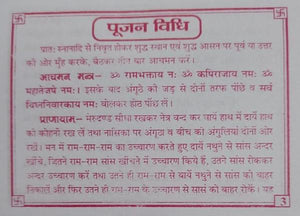 पूजन विधि
प्रातः स्नानादि से निवृत होकर शुद्ध स्थान एवं शुद्ध आसन पर पूर्व या उत्तर
की ओर मुँह करके, बैठकर तीन बार आचमन करे।
आचमन मन्त्र- ॐ रामभक्ताय नः ॐ कपिराजाय नमः ॐ
महातेजपे नमः। इसके बाद अंगूठे की जड़ से दोनों तरफ पोंछे व सर्व
विघ्ननिवारकाय नमः बोलकर होत पोंछ लें।
प्राणायाम- मेरुदण्ड सीधा रखकर नेत्र बन्द कर जायें हाथ में दायें हाथ
की कोहनी रख लें तथा नासिका पर अंगूठा व बीच की अंगुलियां दोनों ओर
रखें। मन में राम-राम का उच्चारण करते हुए दायें नथुने से सांस अन्दर
खींचे, जितने राम-राम सांस खींचने में उच्चारण किये हैं, उतने सांस रोककर
अन्दर उच्चारण करें तथा उतने ही राम-राम से बायें नथुने से सांस को बाहर
निकालें और फिर उतने ही राम-राम के उच्चारण से सांस को बाहर रोकें। यह
3